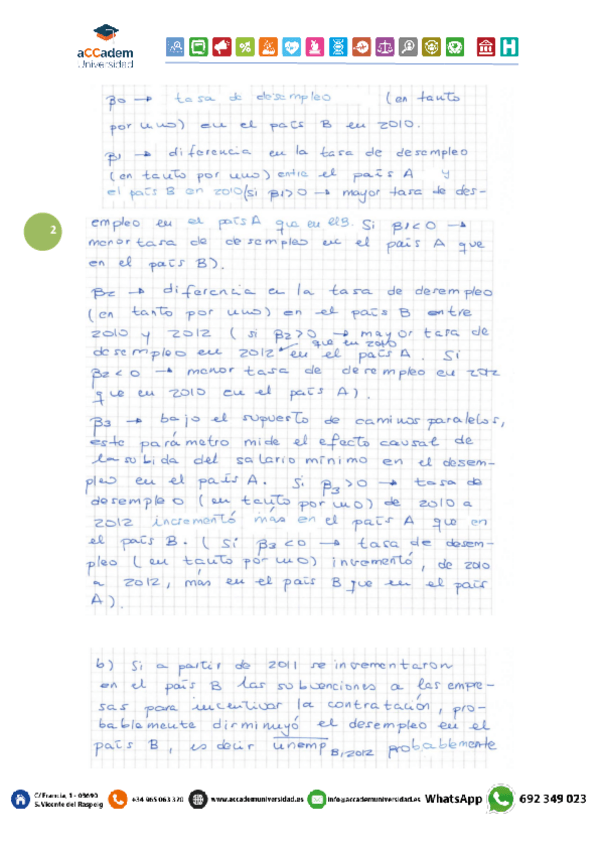 aCCadem
Universidad
β0 → tasa de desempleo (en tanto
por uno) en el país B en 2010.
β1 → diferencia en la tasa de desempleo
(en tanto por uno) entre el país A y
el país B en 2010 (si β1>0 → mayor tasa de des-
2
empleo en el país A que en el B. Si β1<0 →
menor tasa de desempleo en el país A que
en el país B).
β2 → diferencia en la tasa de desempleo
(en tanto por uno) en el país B entre
2010 y 2012 (si β2>0 → mayor tasa de
que en 2010
desempleo en 2012 en el país A. Si
β2<0 → menor tasa de desempleo en 2012
que en 2010 en el país A).
β3 → bajo el supuesto de caminos paralelos,
este parámetro mide el efecto causal de
la subida del salario mínimo en el desem-
pleo en el país A. Si β3>0 → tasa de
desempleo (en tanto por uno) de 2010 a
2012 incrementó más en el país A que en
el país B. (Si β3<0 → tasa de desem-
pleo (en tanto por uno) incrementó, de 2010
a 2012, más en el país B que en el país
A).
b) Si a partir de 2011 se incrementaron
en el país B las subvenciones a las empre-
sas para incentivar la contratación, pro-
bablemente disminuyó el desempleo en el
país B, es decir unemp B,2012 probablemente
C/ Francia, 1 - 03690
S. Vicente del Raspeig
+34 965 063 320
www.accademuniversidad.es
info@accademuniversidad.es
WhatsApp
692 349 023